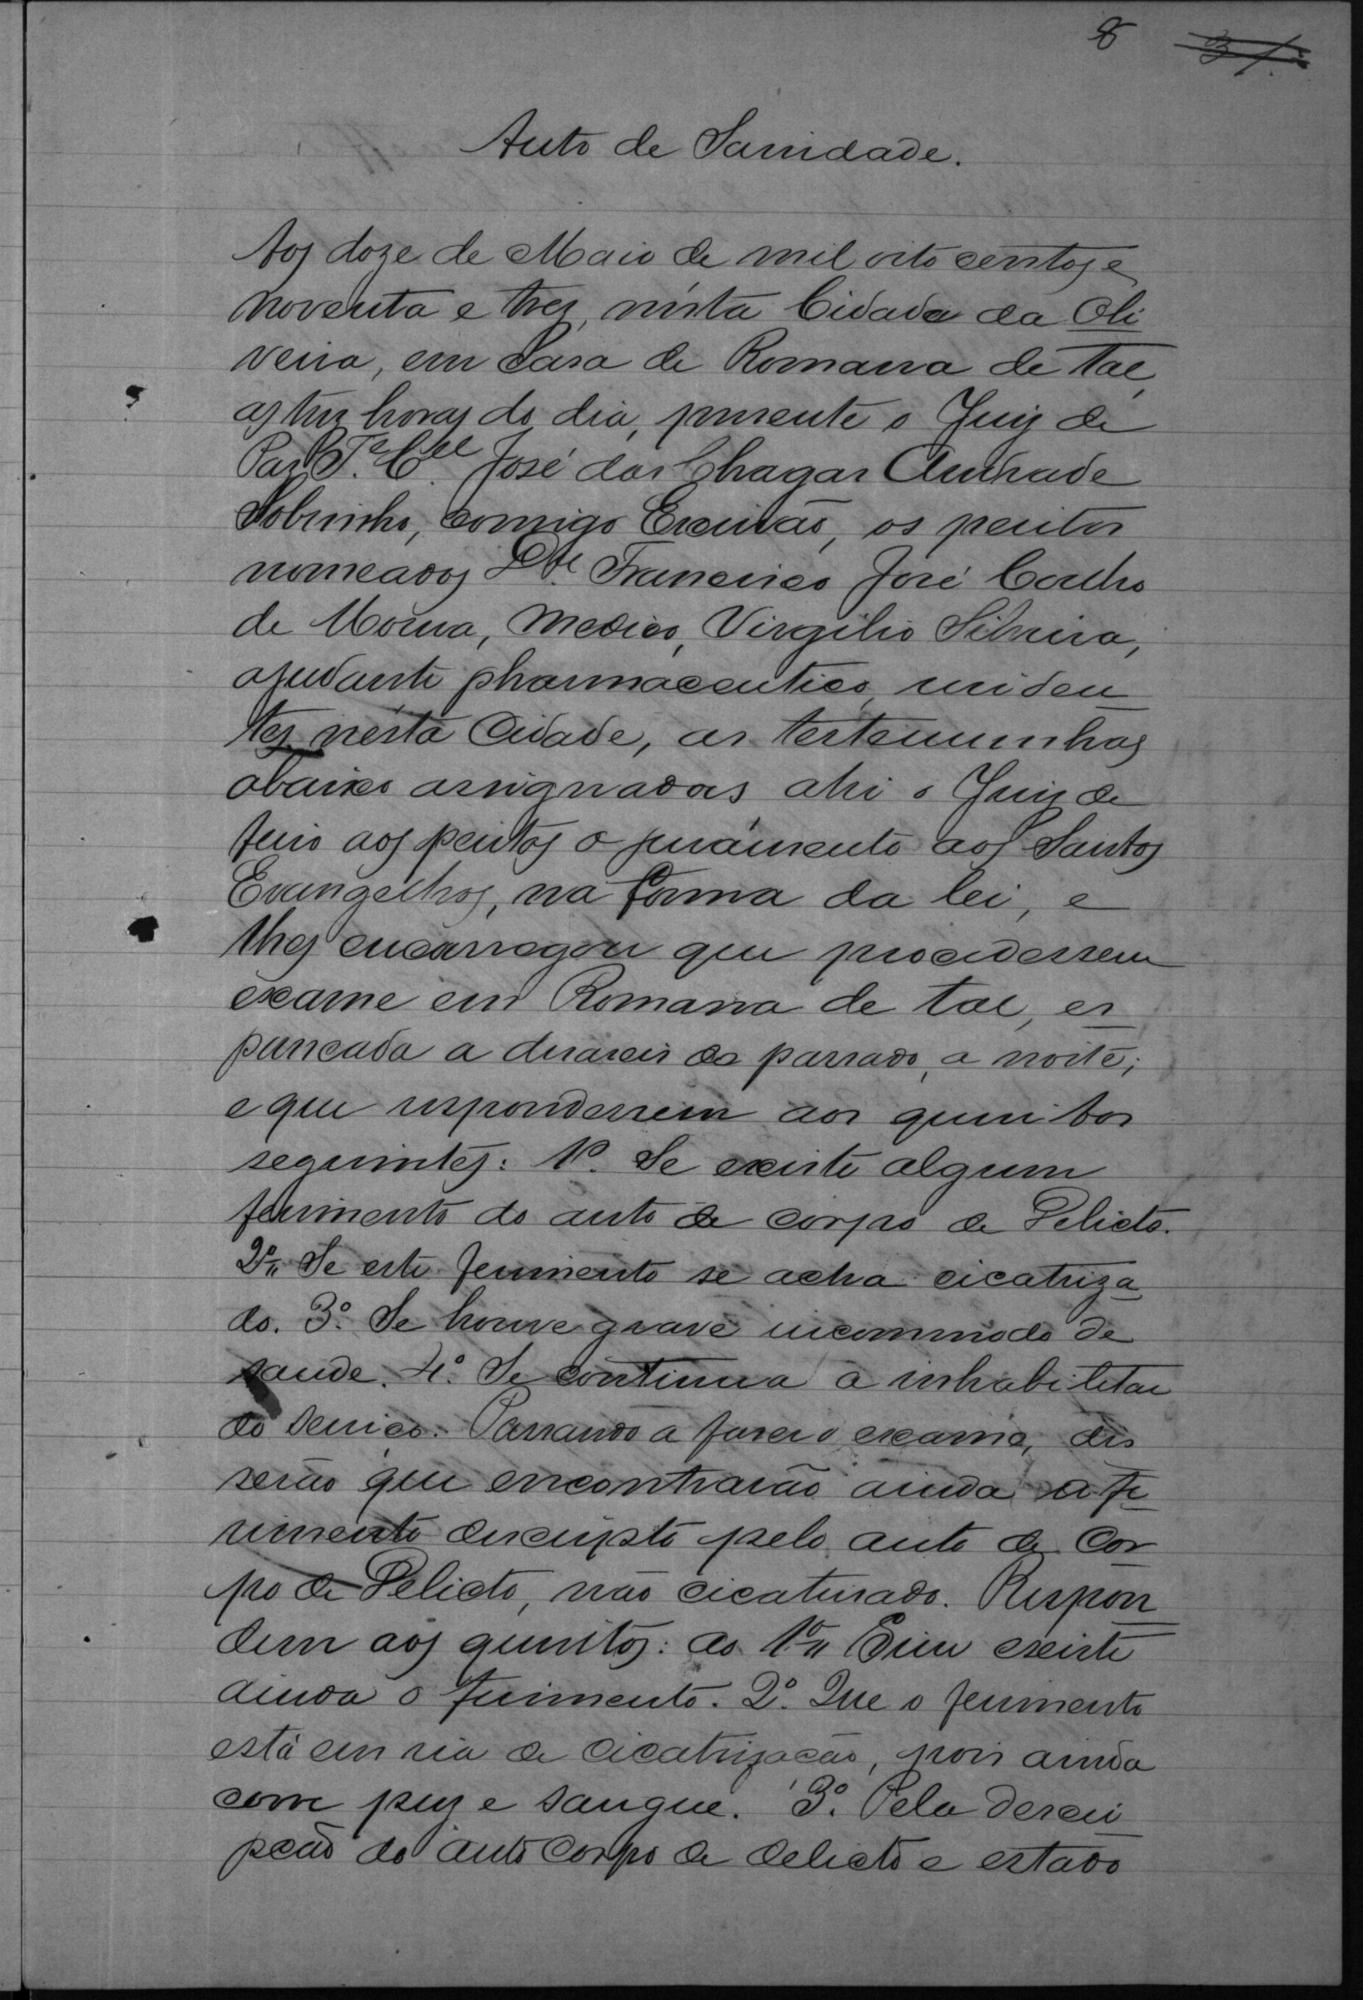 8 31.
Auto de Sanidade.
Aos doze de Maio de mil oito centos e
noventa e tres, nésta Cidade da Oli
veira, em Casa de Romana de tal,
as tres horas do dia, presente o Juiz de
Paz Te. Cel. José das Chagas Andrade
Sobrinho, comigo Escrivão, os peritos
nomeados Dr. Francisco José Coelho
de Moura, Medico, Virgilio Silveira,
ajudante pharmaceutico, residen
tes nésta Cidade, as testemunhas
abaixo assignadas ahi o Juiz de
feriu aos peritos o juramento aos Santos
Evangelhos, na forma da lei, e
lhes encarregou que procedessem
exame em Romana de tal, es
pancada a deseseis do passado, a noite;
e que respondessem aos quesitos
seguintes: 1º. Se existe algum
ferimento do auto de corpo de Delicto.
2º" Se este ferimento se acha cicatriza
do. 3º. Se houve grave incommodo de
saude. 4º. Se continua a inhabilitar
do serviço. Passando a fazer o exame, dis
serão que encontrarão ainda o fe
rimento descripto pelo auto de Cor
po de Delicto, não cicatrisado. Respon
dem aos quesitos: ao 1º" Sim existe
ainda o ferimento. 2º. Que o ferimento
está em via de cicatrização, pois ainda
corre puz e sangue. 3º. Pela descri
pção do auto corpo de delicto e estado